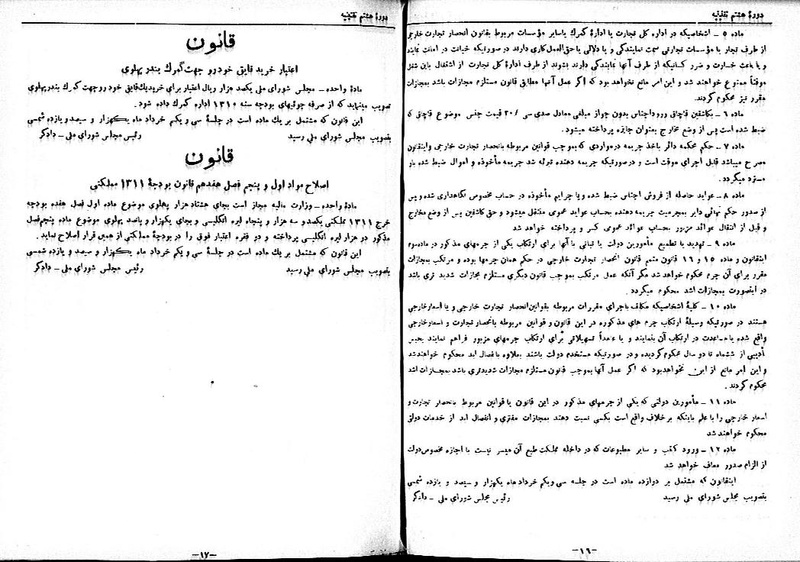 دورهٔ هشتم تقنینیه
ماده ۵ ـ اشخاصیکه در اداره کل تجارت یا ادارهٔ گمرك یاسایر مؤسسات مربوطه بقانون انحصار تجارت خارجی
از طرف تجار یا مؤسسات تجارتی سمت نمایندگی و یا دلالی یا حق‌العمل‌کاری دارند در صورتیکه خیانت در امانت نمایند
و یا باعث خسارت و ضرر کسانیکه از طرف آنها نمایندگی دارند بشوند از طرف ادارهٔ کل تجارت از اشتغال باین شغل
موقتاً ممنوع خواهند شد و این امر مانع نخواهد بود که اگر عمل آنها مطابق قانون مستلزم مجازات باشد بمجازات
مقرر نیز محکوم گردند.
ماده ۶ ـ بکاشفین قاچاق ورود اجناس بدون جواز مبلغی معادل صدی سی ۳۰/۰ قیمت جنس موضوع قاچاق که
ضبط شده است پس از وضع مخارج بعنوان جایزه پرداخته میشود.
ماده ۷ ـ حکم محکمه دائر باخذ جریمه در مواردی که بموجب قوانین مربوطه بانحصار تجارت خارجی واینقانون
مصرح میباشد قابل اجرای موقت است و در صورتیکه جریمه دهنده تبرئه شد جریمه مأخوذه و اموال ضبط شده باو
مسترد میگردد.
ماده ۸ ـ عواید حاصله از فروش اجناس ضبط شده و یا جرایم مأخوذه در حساب مخصوص نگاهداری شده و پس
از صدور حکم نهائی دایر بمجرمیت جریمه دهنده بحساب عواید عمومی منتقل میشود و حق کاشفین پس از وضع مخارج
و قبل از انتقال عوائد مزبور بحساب عوائد عمومی کسر و پرداخته خواهد شد
ماده ۹ ـ تهدید یا تطمیع مأمورین دولت یا تبانی با آنها برای ارتکاب یکی از جرمهای مذکور در ماده سوم
اینقانون و ماده ۱۵ و ۱۶ قانون متمم قانون انحصار تجارت خارجی در حکم همان جرمها بوده و مرتکب بمجازات
مقرر برای آن جرم محکوم خواهد شد مگر آنکه عمل مرتکب بموجب قانون دیگری مستلزم مجازات شدید تری باشد
در اینصورت بمجازات اشد محکوم میگردد.
ماده ۱۰ ـ کلیهٔ اشخاصیکه مکلف باجرای مقررات مربوطه بقوانین انحصار تجارت خارجی و یا اسعار خارجی
هستند در صورتیکه وسیلهٔ ارتکاب جرم های مذکوره در این قانون و قوانین مربوطه بانحصار تجارت و اسعار خارجی
واقع شده یا مساعدت در ارتکاب آن بنمایند و یا عمداً تسهیلاتی برای ارتکاب جرمهای مزبور فراهم نمایند بحبس
تأدیبی از ششماه تا دو سال محکوم گردیده و در صورتیکه مستخدم دولت باشند بعلاوه بانفصال ابد محکوم خواهند شد
و این امر مانع از این نخواهد بود که اگر عمل آنها بموجب قانون مستلزم مجازات شدیدتری باشد بمجازات اشد
محکوم گردند.
ماده ۱۱ ـ مأمورین دولتی که یکی از جرمهای مذکور در این قانون یا قوانین مربوط بانحصار تجارت و
اسعار خارجی را با علم باینکه بر خلاف واقع است بکسی نسبت دهند بمجازات مفتری و انفصال ابد از خدمات دولتی
محکوم خواهند شد
ماده ۱۲ ـ ورود کتب و سایر مطبوعات که در داخله مملکت طبع آن میسر نیست با اجازه مخصوص دولت
از الزام صدور معاف خواهد شد
اینقانون که مشتمل بر دوازده ماده است در جلسه سی ویکم خرداد ماه یکهزار و سیصد و یازده شمسی
بتصویب مجلس شورای ملی رسید رئیس مجلس شورای ملی ـ دادگر
ـ۱۶ـ
دورهٔ هشتم تقنینیه
قانون
اعتبار خرید قایق خودرو جهت گمرك بندر پهلوی
مادهٔ واحده ـ مجلس شورای ملی یکصد هزار ریال اعتبار برای خرید یك قایق خودرو جهت گمرك بندر پهلوی
تصویب مینماید که از صرفه جوئیهای بودجه سنه ۱۳۱۰ اداره گمرك داده شود.
این قانون که مشتمل بر یك ماده است در جلسه سی و یکم خرداد ماه یکهزار و سیصد و یازده شمسی
بتصویب مجلس شورای ملی رسید رئیس مجلس شورای ملی ـ دادگر
قانون
اصلاح مواد اول و پنجم فصل هفدهم قانون بودجهٔ ۱۳۱۱ مملکتی
مادهٔ واحده ـ وزارت مالیه مجاز است بجای هشتاد هزار پهلوی موضوع ماده اول فصل هفده بودجه
خرج ۱۳۱۱ مملکتی یکصد و سه هزار و پنجاه لیره انگلیسی و بجای یکهزار و پانصد پهلوی موضوع ماده پنجم فصل
مذکور دو هزار لیره انگلیسی پرداخته و دو فقره اعتبار فوق را در بودجهٔ مملکتی از همین قرار اصلاح نماید.
این قانون که مشتمل بر یك ماده است در جلسه سی و یکم خرداد ماه یکهزار و سیصد و یازده شمسی
بتصویب مجلس شورای ملی رسید رئیس مجلس شورای ملی ـ دادگر
ـ۱۷ـ